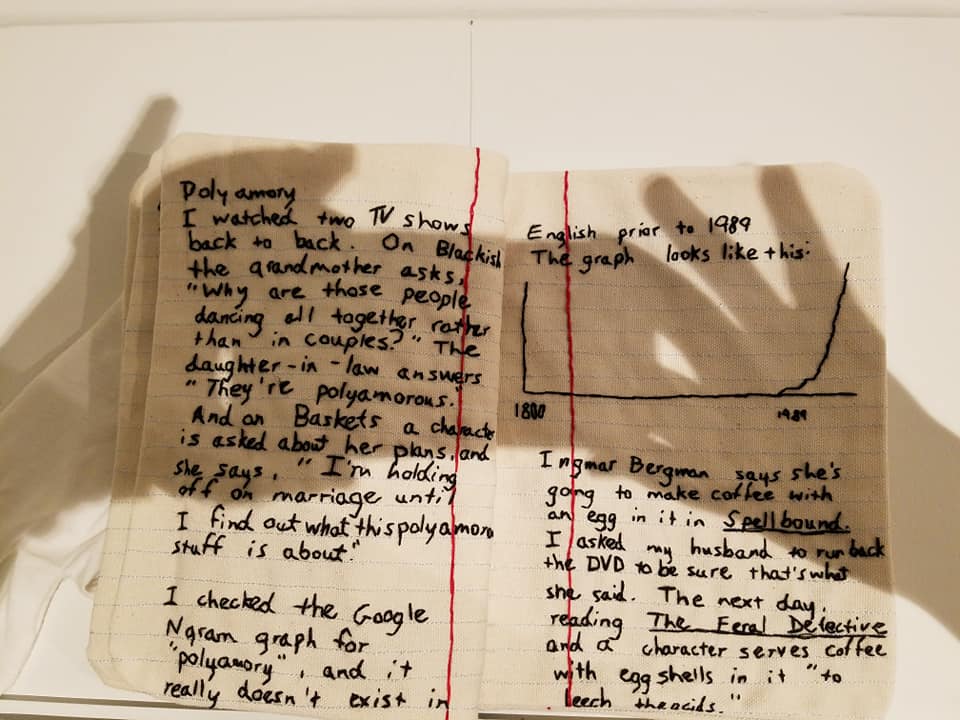 Polyamory
I watched two TV shows
back to back. On Blackish
the grandmother asks,
"Why are those people
dancing all together rather
than in couples?" The
daughter-in-law answers
"They're polyamorous."
And on Baskets a character
is asked about her plans, and
she says, "I'm holding
off on marriage until
I find out what this polyamoro
stuff is about"
I checked the Google
Ngram graph for
"polyamory", and it
really doesn't exist in
English prior to 1989
The graph looks like this:
1800 1989
Ingmar Bergman says she's
going to make coffee with
an egg in it in Spellbound.
I asked my husband to run back
the DVD to be sure that's what
she said. The next day,
reading The Feral Detective
and a character serves coffee
with egg shells in it "to
leech the acids."